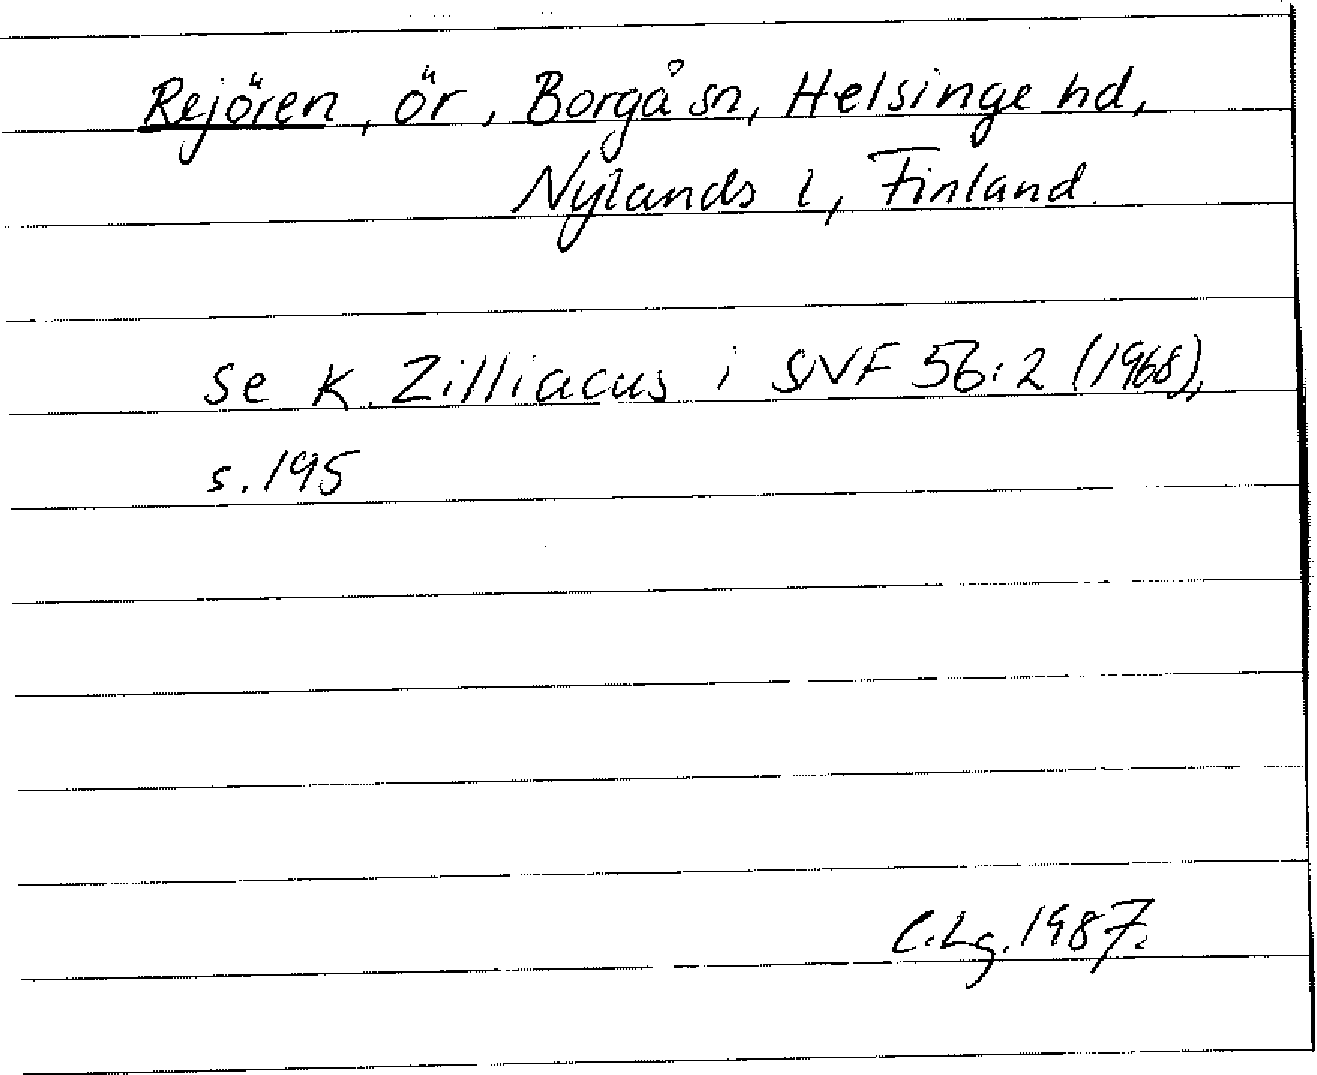 Rejören, ör, Borgå sn, Helsinge hd,
Nylands l, Finland.
Se K. Zilliacus i SNF 56:2 (1968),
s. 195
C.Lg. 1987.